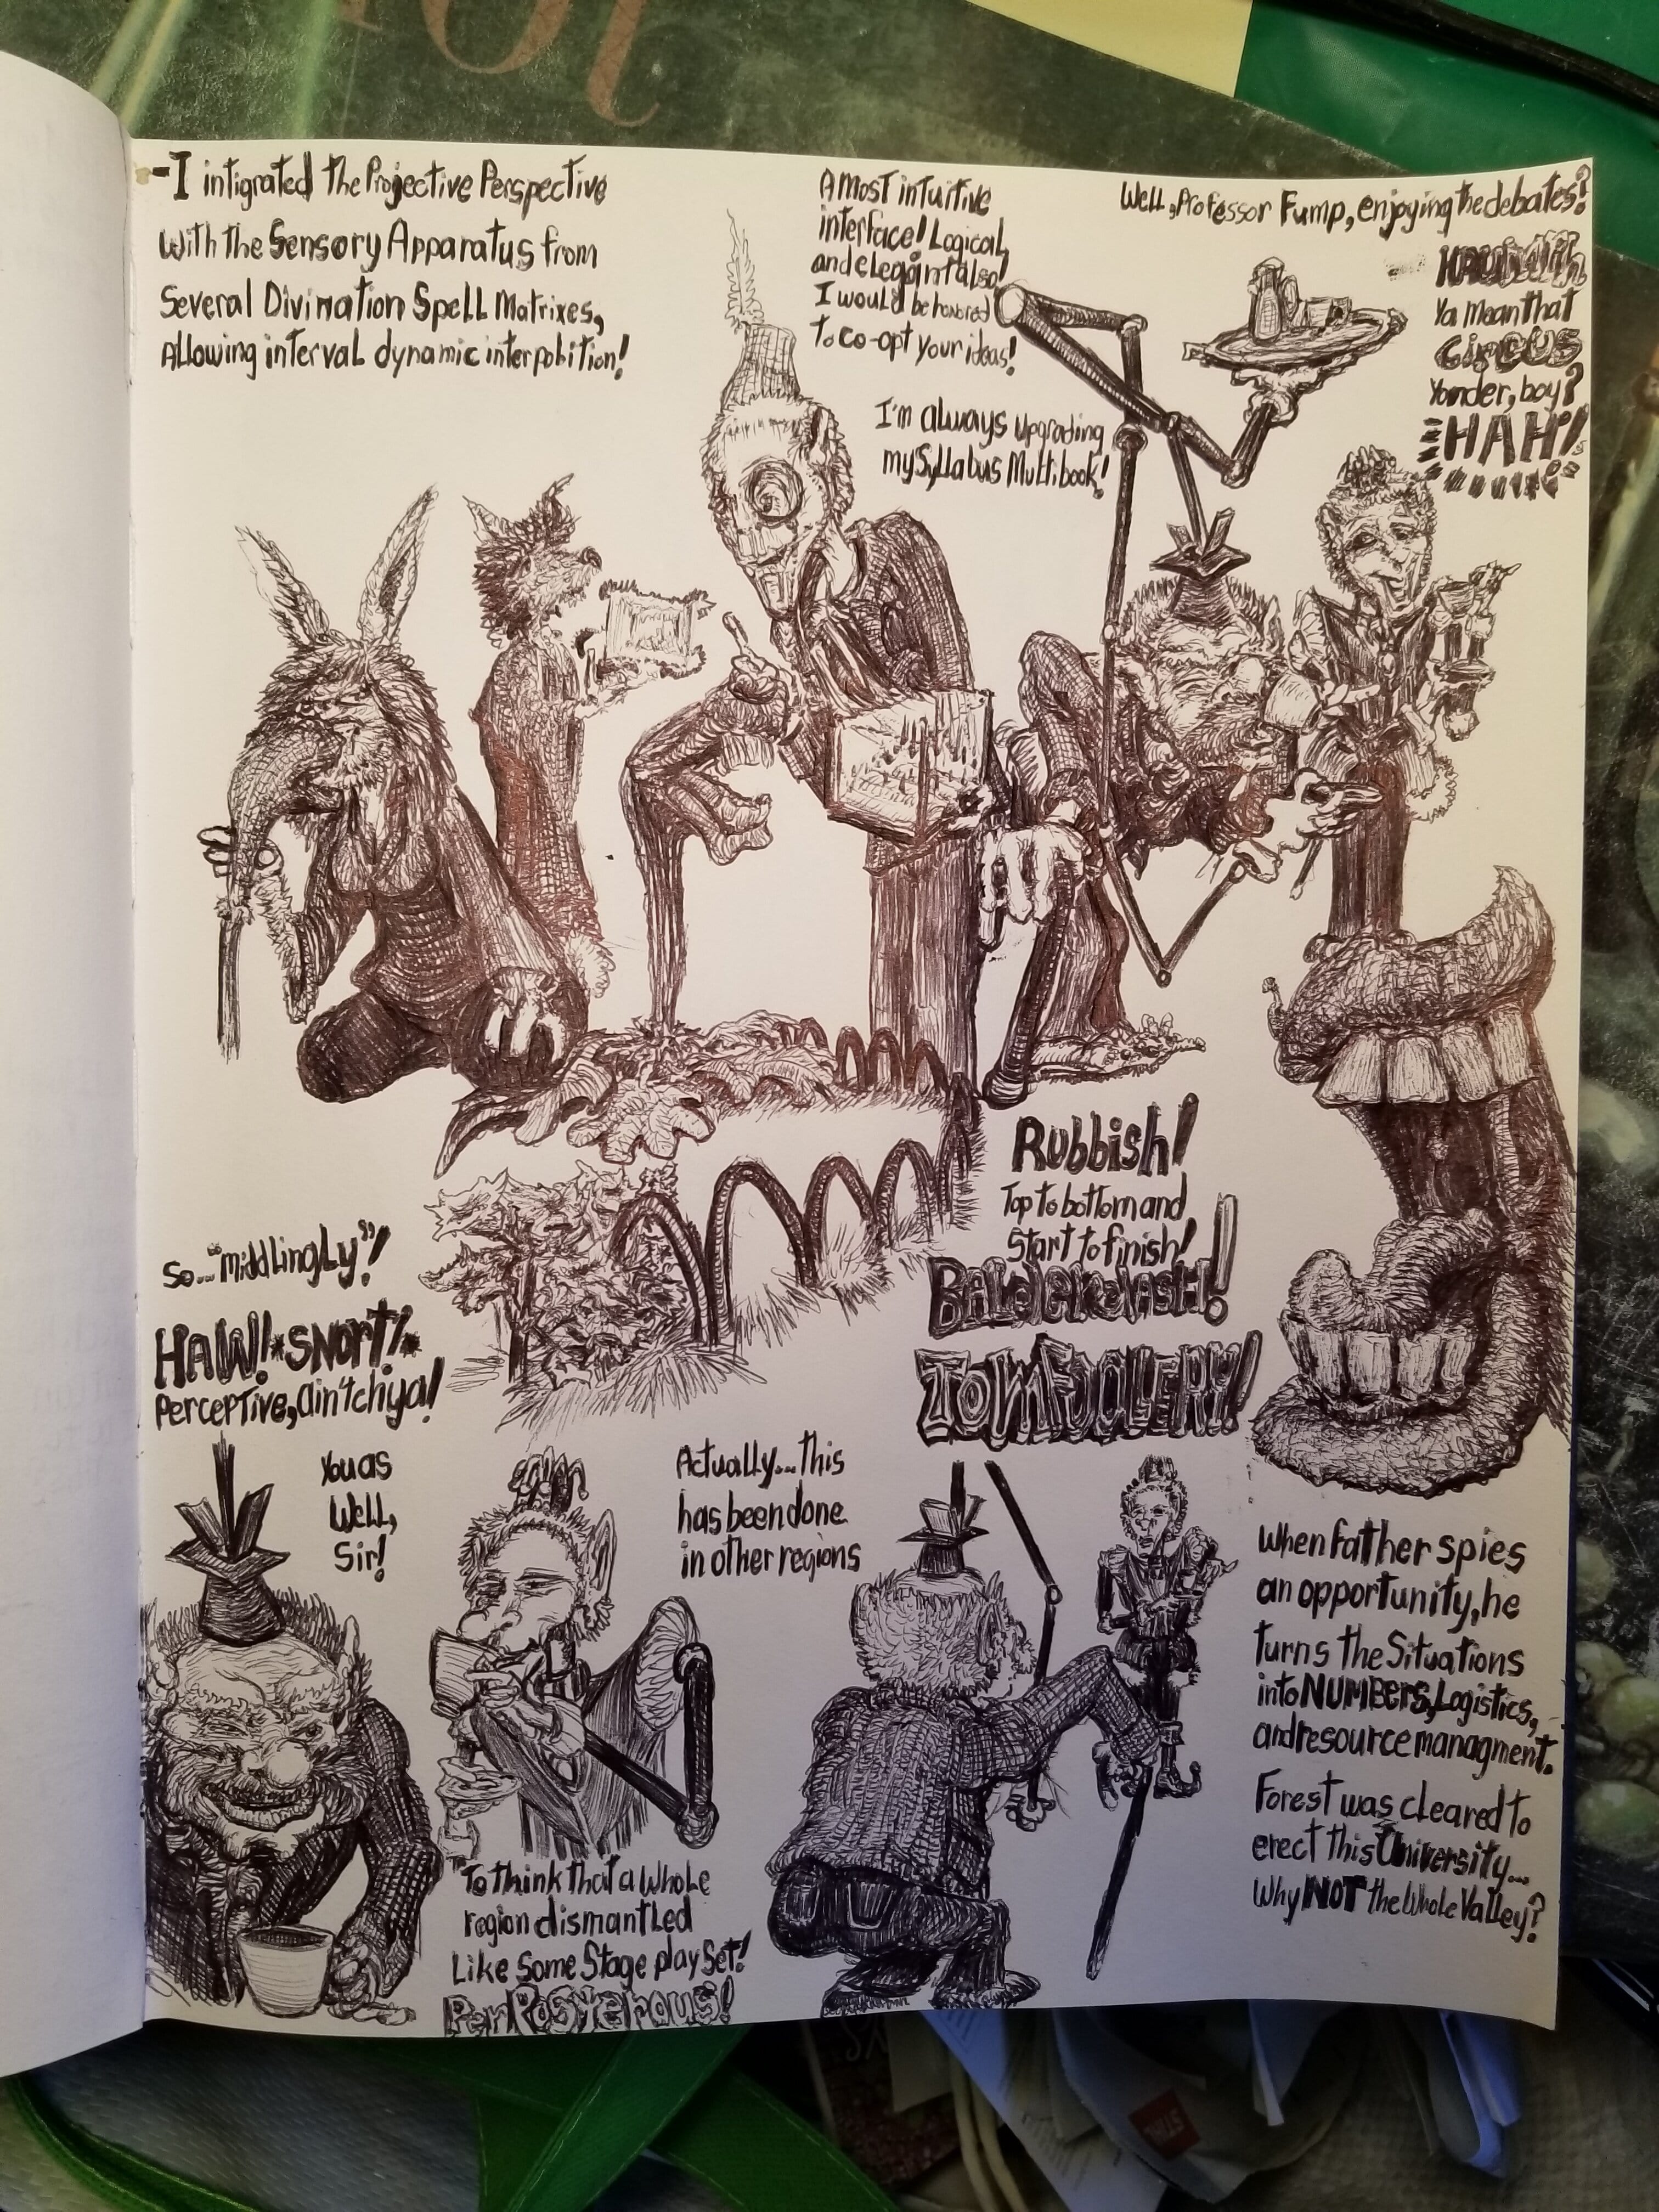 -I intigrated the Projective Perspective
with the Sensory Apparatus from
Several Divination Spell Matrixes,
Allowing interval dynamic interpobition!
A most intuitive
interface! Logical,
and elegant also!
I would be honored
to co-opt your ideas!
I'm always upgrading
my Syllabus Multibook!
Well, Professor Fump, enjoying the debates?
Ya mean that
CIRCUS
Yonder, boy?
HAH!
Rubbish!
Top to bottom and
Start to finish!
BALderdASH!
TOMFOOLERY!
So..."middlingly"!
HAW!*SNOrT!*
Perceptive, ain'tchya!
You as
Well,
Sir!
Actually...this
has been done
in other regions
To think that a whole
region dismantled
Like Some Stage play Set!
PerPosterous!
When father spies
an opportunity, he
turns the Situations
into NUMBErS, Logistics,
and resource managment.
Forest was cleared to
erect this University...
Why NOT the Whole Valley?